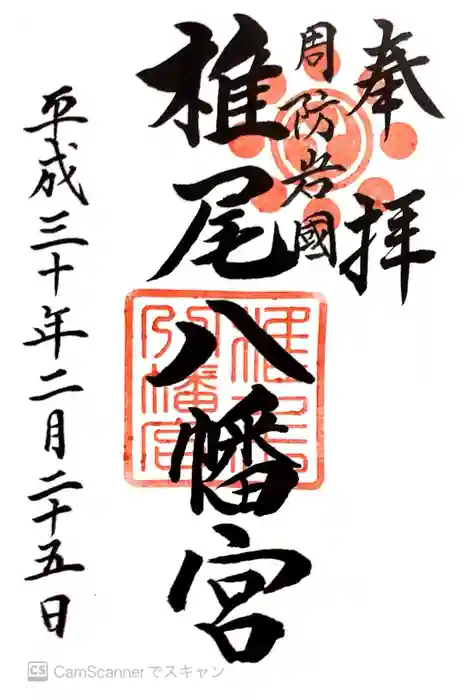 奉拝
周防岩國
椎尾八幡宮
平成三十年二月二十五日
椎尾八幡宮
CS CamScannerでスキャン